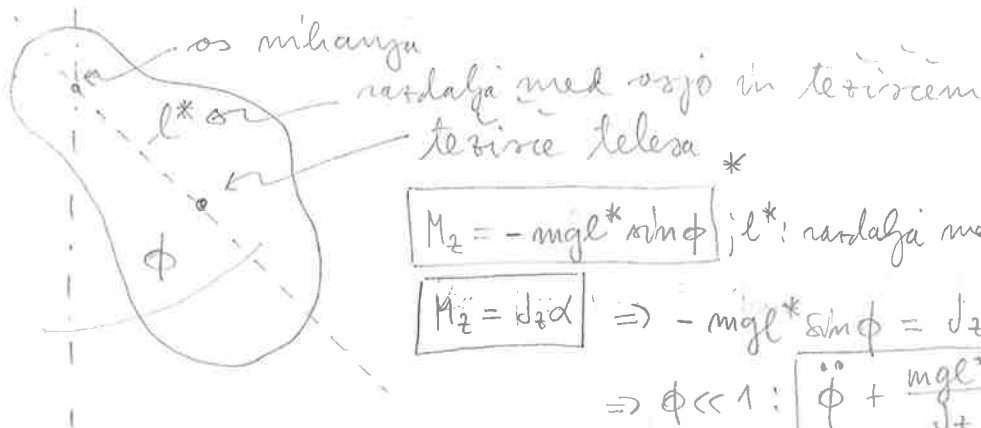 os nihanja
l* razdalja med osjo in težiščem
težišče telesa
*
ϕ
M_z = - mgl* sinϕ ; l*: razdalja me
M_z = J_z α => - mgl* sinϕ = J_z
=> ϕ << 1 : ϕ̈ + mgl* / J_z